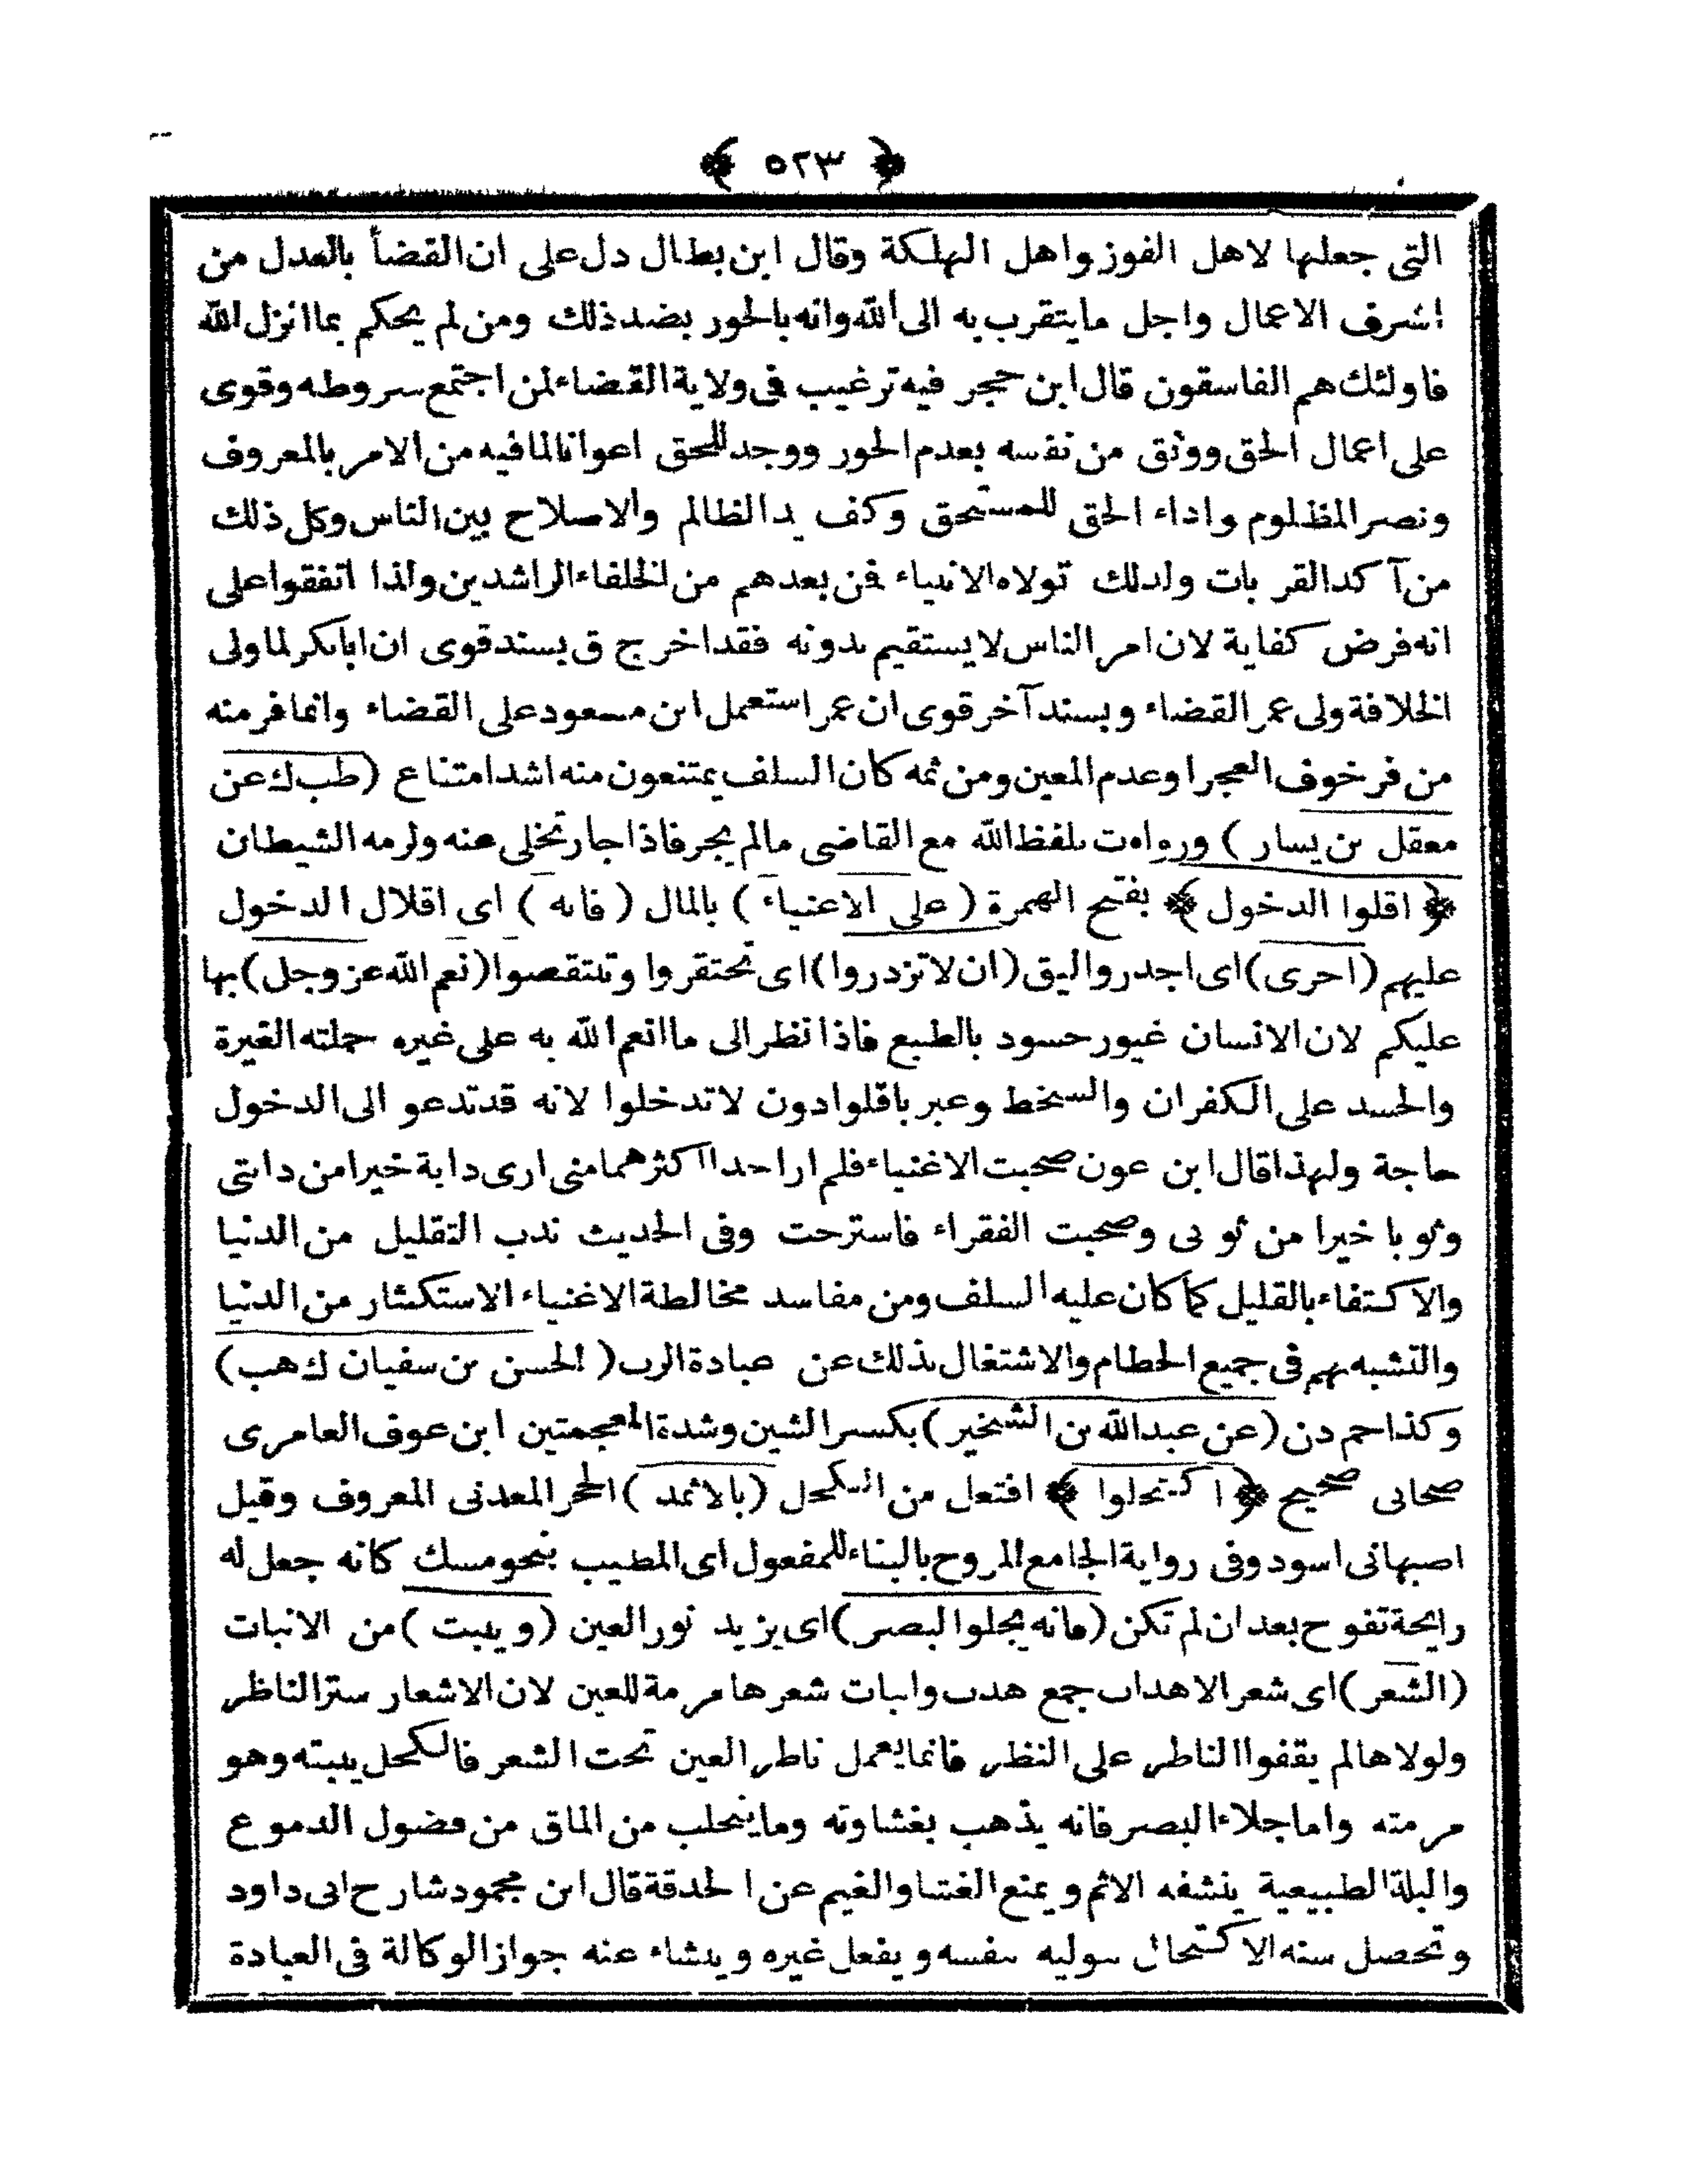 ﴿ ٥٢٣ ﴾
التى جعلها لاهل الفوز واهل الهلكة وقال ابن بطال دل على ان القضأ بالعدل من
اشرف الاعمال واجل مايتقرب به الى الله وانه بالجور بضد ذلك ومن لم يحكم بما انزل الله
فاولئك هم الفاسقون قال ابن حجر فيه ترغيب فى ولاية القضاء لمن اجتمع سروطه وقوى
على اعمال الحق ووثق من نفسه بعدم الجور ووجد للحق اعوانا لما فيه من الامر بالمعروف
ونصر المظلوم واداء الحق للمستحق وكف يد الظالم والاصلاح بين الناس وكل ذلك
من آكد القربات ولذلك تولاه الانبياء فمن بعدهم من الخلفاء الراشدين ولذا اتفقوا على
انه فرض كفاية لان امر الناس لا يستقيم بدونه فقد اخرج ق بسند قوى ان ابابكر لما ولى
الخلافة ولى عمر القضاء وبسند آخر قوى ان عمر استعمل ابن مسعود على القضاء وانما فر منه
من فر خوف العجز او عدم المعين ومن ثمه كان السلف يمتنعون منه اشد امتناع (طب ك عن
معقل بن يسار) ورواه ت بلفظ الله مع القاضى مالم يجر فاذا جار تخلى عنه ولزمه الشيطان
﴿اقلوا الدخول﴾ بفتح الهمزة (على الاغنياء) بالمال (فانه) اى اقلال الدخول
عليهم (احرى) اى اجدر واليق (ان لا تزدروا) اى تحتقروا وتنتقصوا (نعم الله عز وجل) بها
عليكم لان الانسان غيور حسود بالطبع فاذا نظر الى ما انعم الله به على غيره حملته الغيرة
والحسد على الكفران والسخط وعبر باقلوا دون لا تدخلوا لانه قد تدعو الى الدخول
حاجة ولهذا قال ابن عون صحبت الاغنياء فلم ار احدا اكثر هما منى ارى دابة خيرا من دابتى
وثوبا خيرا من ثوبى وصحبت الفقراء فاسترحت وفى الحديث ندب التقليل من الدنيا
والاكتفاء بالقليل كما كان عليه السلف ومن مفاسد مخالطة الاغنياء الاستكثار من الدنيا
والتشبه بهم فى جميع الحطام والاشتغال بذلك عن عبادة الرب (الحسن بن سفيان ك هب)
وكذا حم د ن (عن عبدالله بن الشخير) بكسر الشين وشدة المعجمتين ابن عوف العامرى
صحابى صحيح ﴿اكتحلوا﴾ افتعل من الكحل (بالاثمد) الحجر المعدنى المعروف وقيل
اصبهانى اسود وفى رواية الجامع المروح بالبناء للمفعول اى المطيب بنحو مسك كانه جعل له
رايحة تفوح بعد ان لم تكن (فانه يجلوا لبصر) اى يزيد نور العين (وينبت) من الانبات
(الشعر) اى شعر الاهداب جمع هدب وانبات شعرها مرمة للعين لان الاشعار ستر الناظر
ولولاها لم يقفوا الناظر على النظر فانما يعمل ناظر العين تحت الشعر فالكحل ينبته وهو
مرمته واما جلاء البصر فانه يذهب بغشاوته وما ينحلب من الماق من فضول الدموع
والبلة الطبيعية ينشفه الاثم ويمنع الغشا والغيم عن الحدقة قال ابن محمود شارح ابى داود
وتحصل سنه الاكتحال بتوليه بنفسه وبفعل غيره وينشاء عنه جواز الوكالة فى العبادة